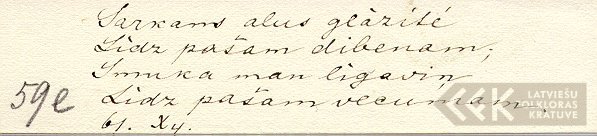 Sarkans alus glāzītē
Līdz pašam dibenam;
Smuka man līgaviņ
Līdz pašam vecumam.
59e
61. Xy.
LATVIEŠU
FOLKLORAS
KRĀTUVE